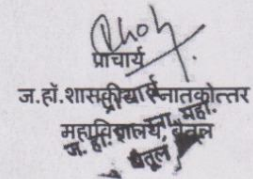 प्राचार्य
ज.हॉ.शासकीय स्नातकोत्तर
महाविद्यालय, बैतूल
प्राचार्य
ज. हॉ. शा. महा.
बैतूल